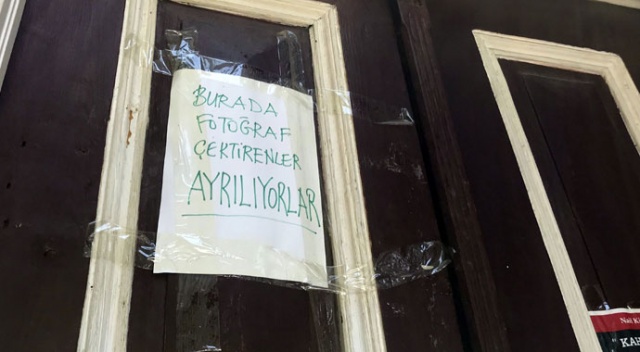 BURADA
FOTOĞRAF
ÇEKTİRENLER
AYRILIYORLAR